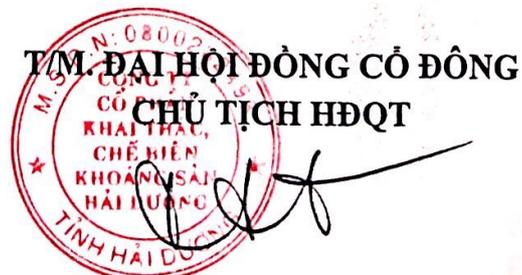 T/M. ĐẠI HỘI ĐỒNG CỔ ĐÔNG
CHỦ TỊCH HĐQT
CÔNG TY
CỔ PHẦN
KHAI THÁC,
CHẾ BIẾN
KHOÁNG SẢN
HẢI DƯƠNG
TỈNH HẢI DƯƠNG